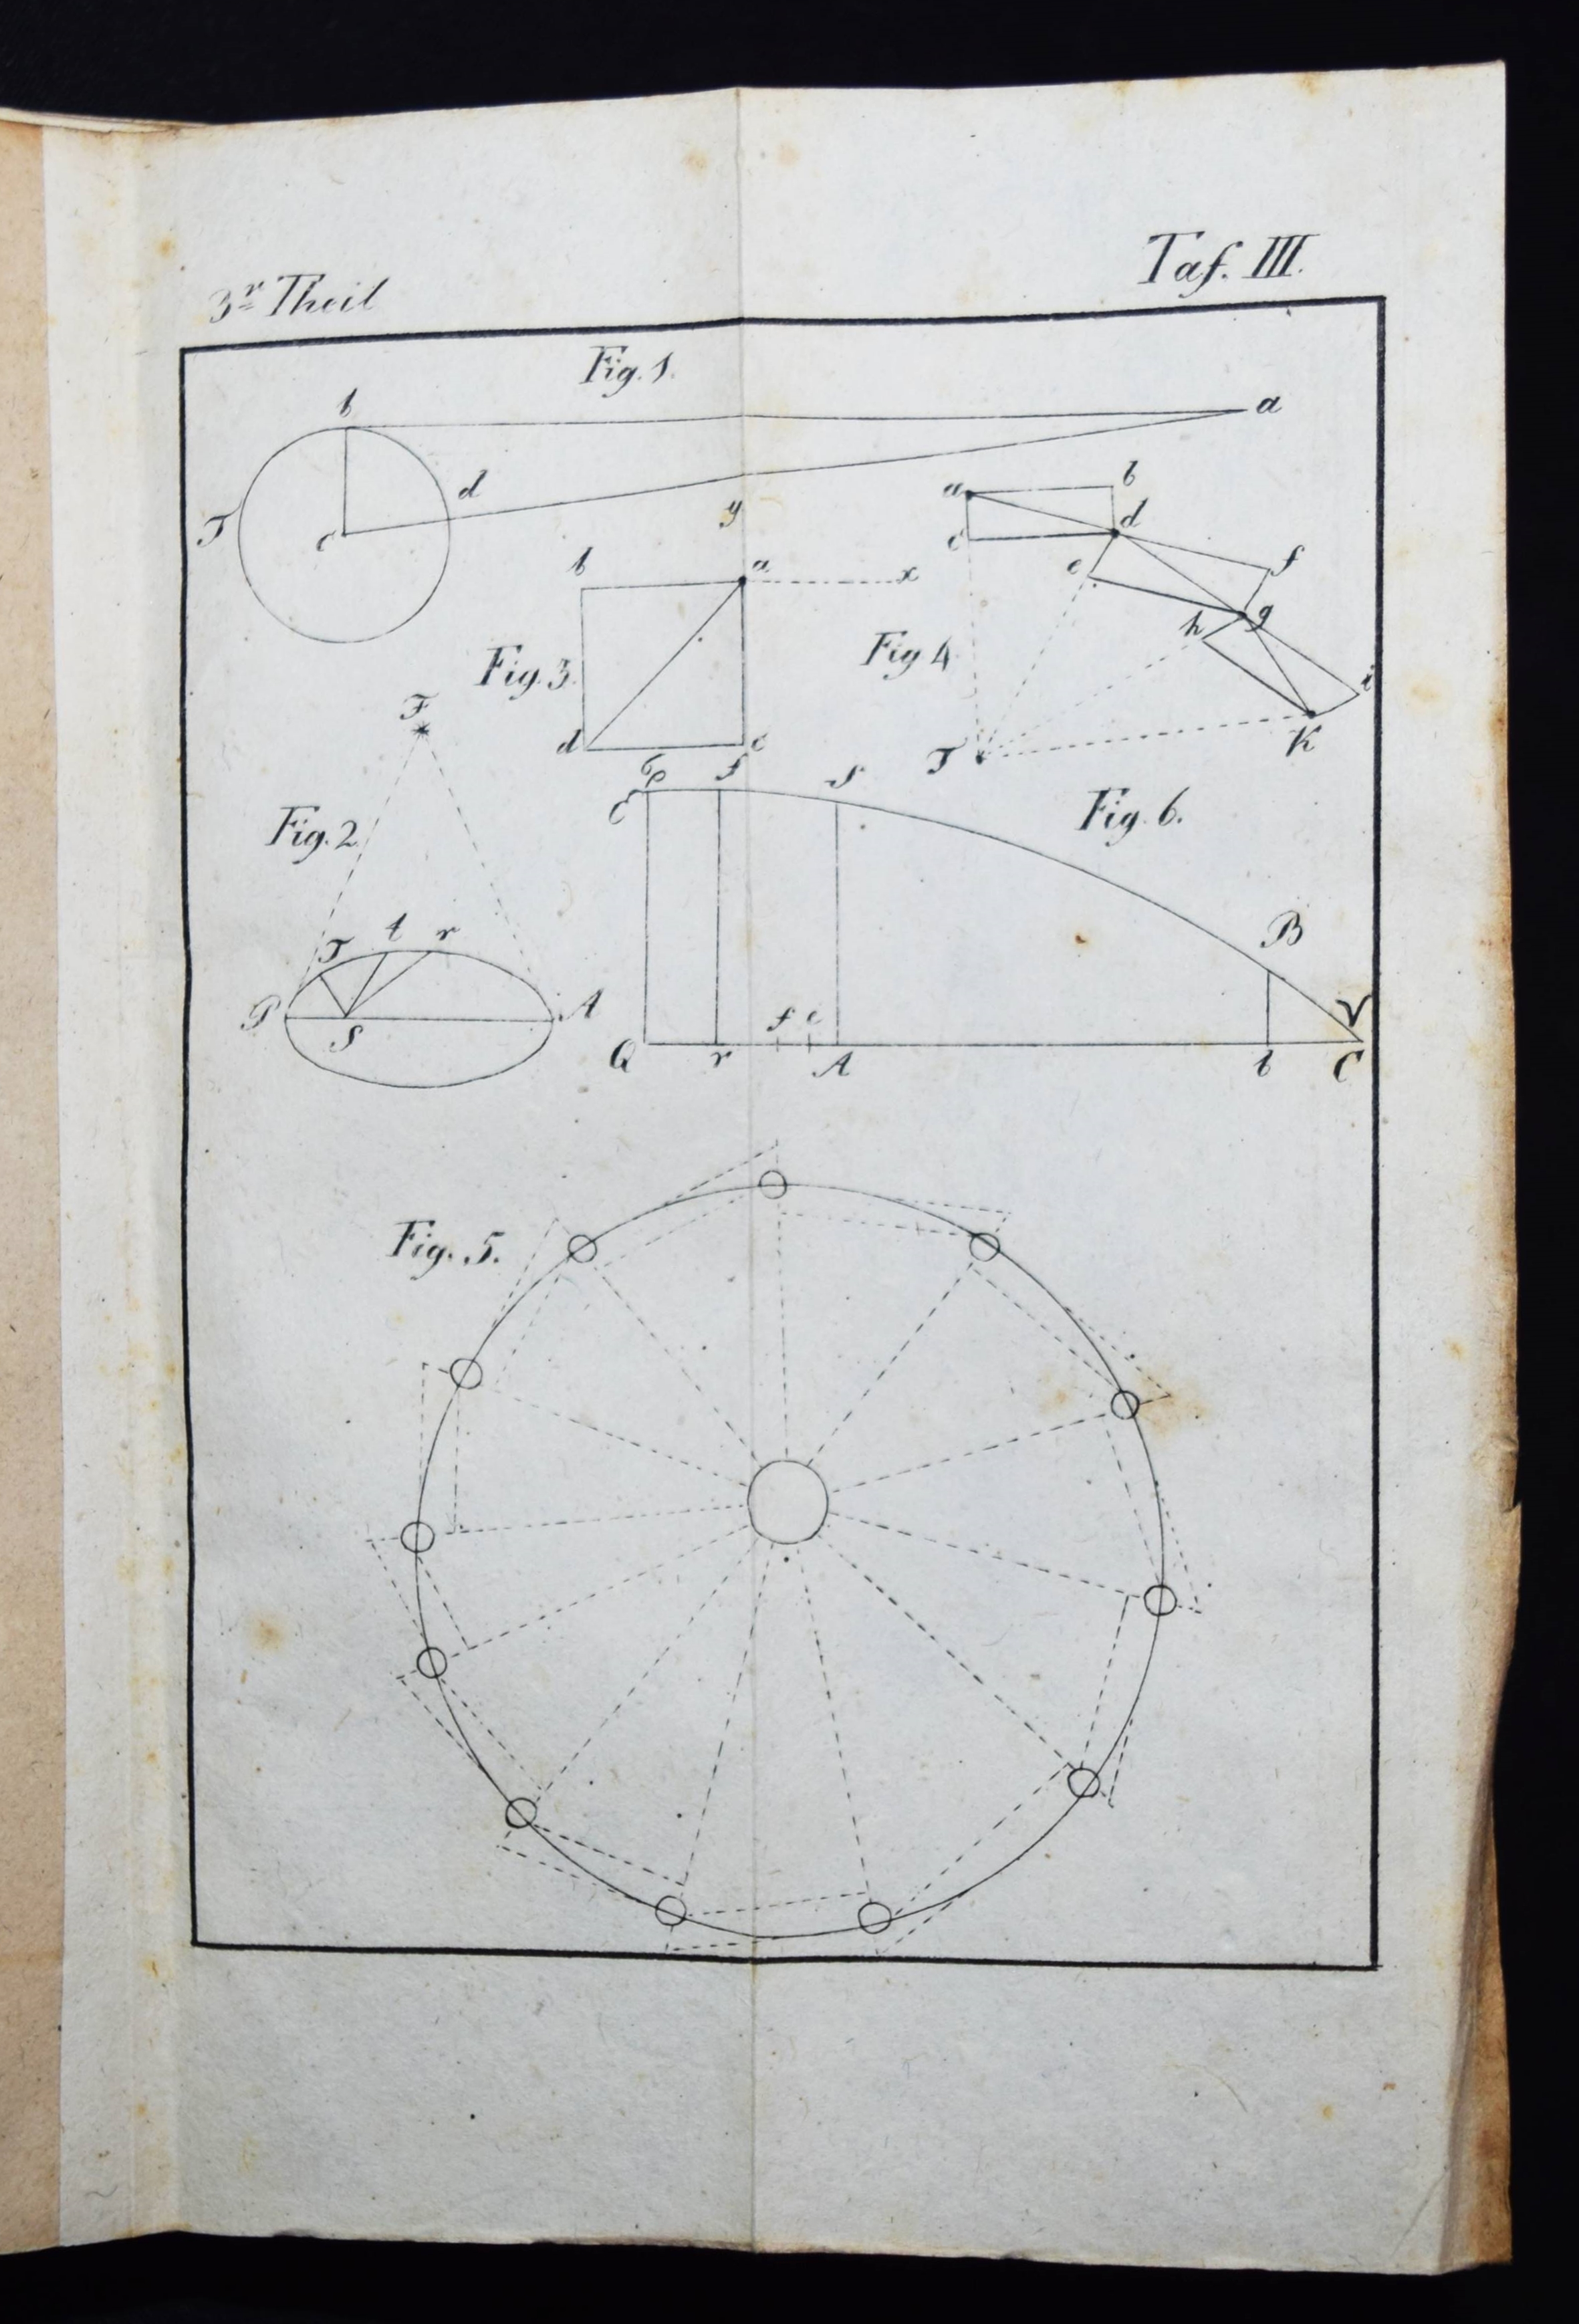 3r Theil
Taf. III.
Fig. 1.
b
a
d
T
c
y
b
a
x
Fig. 3.
d
c
a
b
c
d
e
f
g
h
i
K
T
Fig 4
F
Fig. 2
T
t
r
P
S
A
E
f
S
Fig. 6.
B
V
f
e
Q
r
A
b
C
Fig. 5.